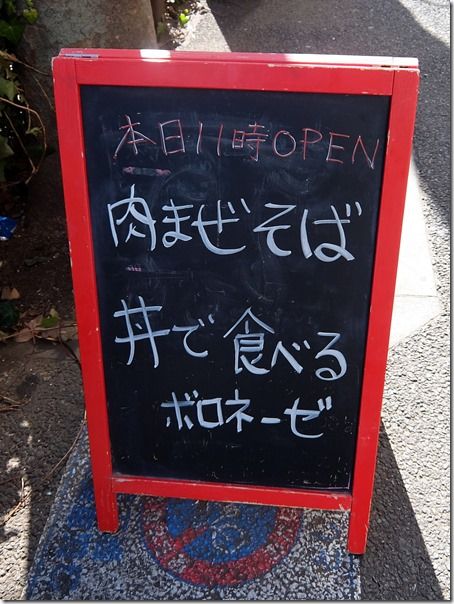 本日11時OPEN
肉まぜそば
丼で食べる
ボロネーゼ